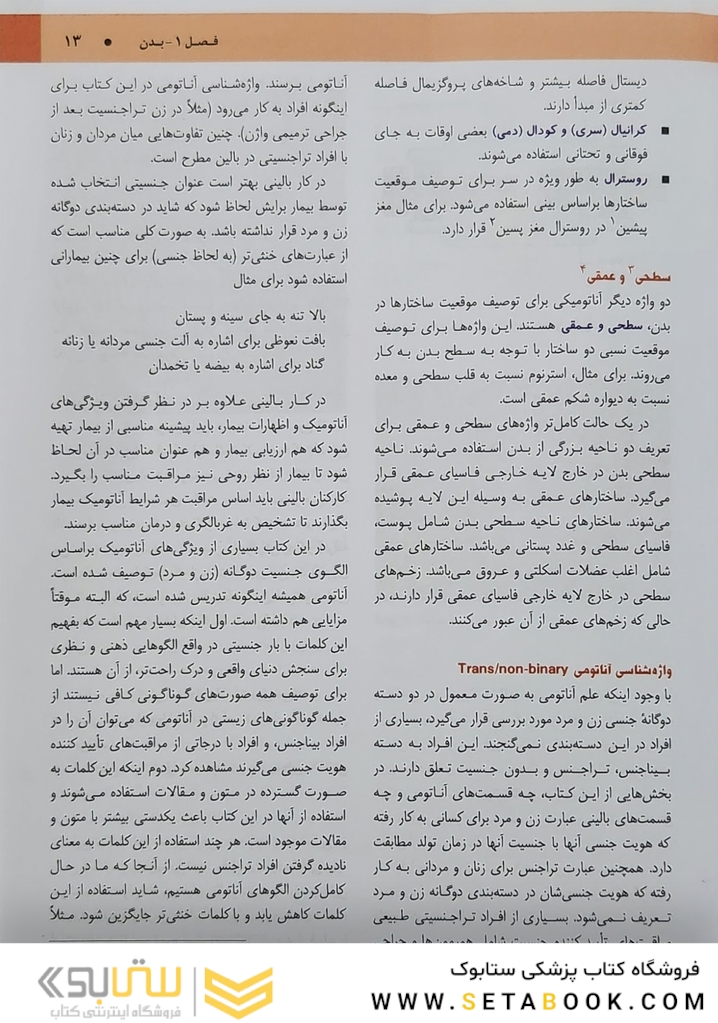 فصل ۱- بدن • ۱۳
دیستال فاصله بیشتر و شاخه‌های پروگزیمال فاصله
کمتری از مبدأ دارند.
■ کرانیال (سری) و کودال (دمی) بعضی اوقات به جای
فوقانی و تحتانی استفاده می‌شوند.
■ روسترال به طور ویژه در سر برای توصیف موقعیت
ساختارها براساس بینی استفاده می‌شود. برای مثال مغز
پیشین۱ در روسترال مغز پسین۲ قرار دارد.
سطحی۳ و عمقی۴
دو واژه دیگر آناتومیکی برای توصیف موقعیت ساختارها در
بدن، سطحی و عمقی هستند. این واژه‌ها برای توصیف
موقعیت نسبی دو ساختار با توجه به سطح بدن به کار
می‌روند. برای مثال، استرنوم نسبت به قلب سطحی و معده
نسبت به دیواره شکم عمقی است.
در یک حالت کامل‌تر واژه‌های سطحی و عمقی برای
تعریف دو ناحیه بزرگی از بدن استفاده می‌شوند. ناحیه
سطحی بدن در خارج لایه خارجی فاسیای عمقی قرار
می‌گیرد. ساختارهای عمقی به وسیله این لایه پوشیده
می‌شوند. ساختارهای ناحیه سطحی بدن شامل پوست،
فاسیای سطحی و غدد پستانی می‌باشد. ساختارهای عمقی
شامل اغلب عضلات اسکلتی و عروق می‌باشد. زخم‌های
سطحی در خارج لایه خارجی فاسیای عمقی قرار دارند، در
حالی که زخم‌های عمقی از آن عبور می‌کنند.
واژه‌شناسی آناتومی Trans/non-binary
با وجود اینکه علم آناتومی به صورت معمول در دو دسته
دوگانهٔ جنسی زن و مرد مورد بررسی قرار می‌گیرد، بسیاری از
افراد در این دسته‌بندی نمی‌گنجند. این افراد به دسته
بیناجنس، تراجنس و بدون جنسیت تعلق دارند. در
بخش‌هایی از این کتاب، چه قسمت‌های آناتومی و چه
قسمت‌های بالینی عبارت زن و مرد برای کسانی به کار رفته
که هویت جنسی آنها با جنسیت آنها در زمان تولد مطابقت
دارد. همچنین عبارت تراجنس برای زنان و مردانی به کار
رفته که هویت جنسی‌شان در دسته‌بندی دوگانه زن و مرد
تعریف نمی‌شود. بسیاری از افراد تراجنسیتی طبیعی
آناتومی برسند. واژه‌شناسی آناتومی در این کتاب برای
اینگونه افراد به کار می‌رود (مثلاً در زن تراجنسیت بعد از
جراحی ترمیمی واژن). چنین تفاوت‌هایی میان مردان و زنان
با افراد تراجنسیتی در بالین مطرح است.
در کار بالینی بهتر است عنوان جنسیتی انتخاب شده
توسط بیمار برایش لحاظ شود که شاید در دسته‌بندی دوگانه
زن و مرد قرار نداشته باشد. به صورت کلی مناسب است که
از عبارت‌های خنثی‌تر (به لحاظ جنسی) برای چنین بیمارانی
استفاده شود برای مثال
بالا تنه به جای سینه و پستان
بافت نعوظی برای اشاره به آلت جنسی مردانه یا زنانه
گناد برای اشاره به بیضه یا تخمدان
در کار بالینی علاوه بر در نظر گرفتن ویژگی‌های
آناتومیک و اظهارات بیمار، باید پیشینه مناسبی از بیمار تهیه
شود که هم ارزیابی بیمار و هم عنوان مناسب در آن لحاظ
شود تا بیمار از نظر روحی نیز مراقبت مناسب را بگیرد.
کارکنان بالینی باید اساس مراقبت هر شرایط آناتومیک بیمار
بگذارند تا تشخیص به غربالگری و درمان مناسب برسند.
در این کتاب بسیاری از ویژگی‌های آناتومیک براساس
الگوی جنسیت دوگانه (زن و مرد) توصیف شده است.
آناتومی همیشه اینگونه تدریس شده است، که البته موقتاً
مزایایی هم داشته است. اول اینکه بسیار مهم است که بفهیم
این کلمات با بار جنسیتی در واقع الگوهایی ذهنی و نظری
برای سنجش دنیای واقعی و درک راحت‌تر، از آن هستند. اما
برای توصیف همه صورت‌های گوناگونی کافی نیستند از
جمله گوناگونی‌های زیستی در آناتومی که می‌توان آن را در
افراد بیناجنس، و افراد با درجاتی از مراقبت‌های تأیید کننده
هویت جنسی می‌گیرند مشاهده کرد. دوم اینکه این کلمات به
صورت گسترده در متون و مقالات استفاده می‌شوند و
استفاده از آنها در این کتاب باعث یکدستی بیشتر با متون و
مقالات موجود است. هر چند استفاده از این کلمات به معنای
نادیده گرفتن افراد تراجنس نیست. از آنجا که ما در حال
کامل‌کردن الگوهای آناتومی هستیم، شاید استفاده از این
کلمات کاهش یابد و با کلمات خنثی‌تر جایگزین شود. مثلاً
فروشگاه کتاب پزشکی ستابوک
WWW.SETABOOK.COM
ستابوک
فروشگاه اینترنتی کتاب